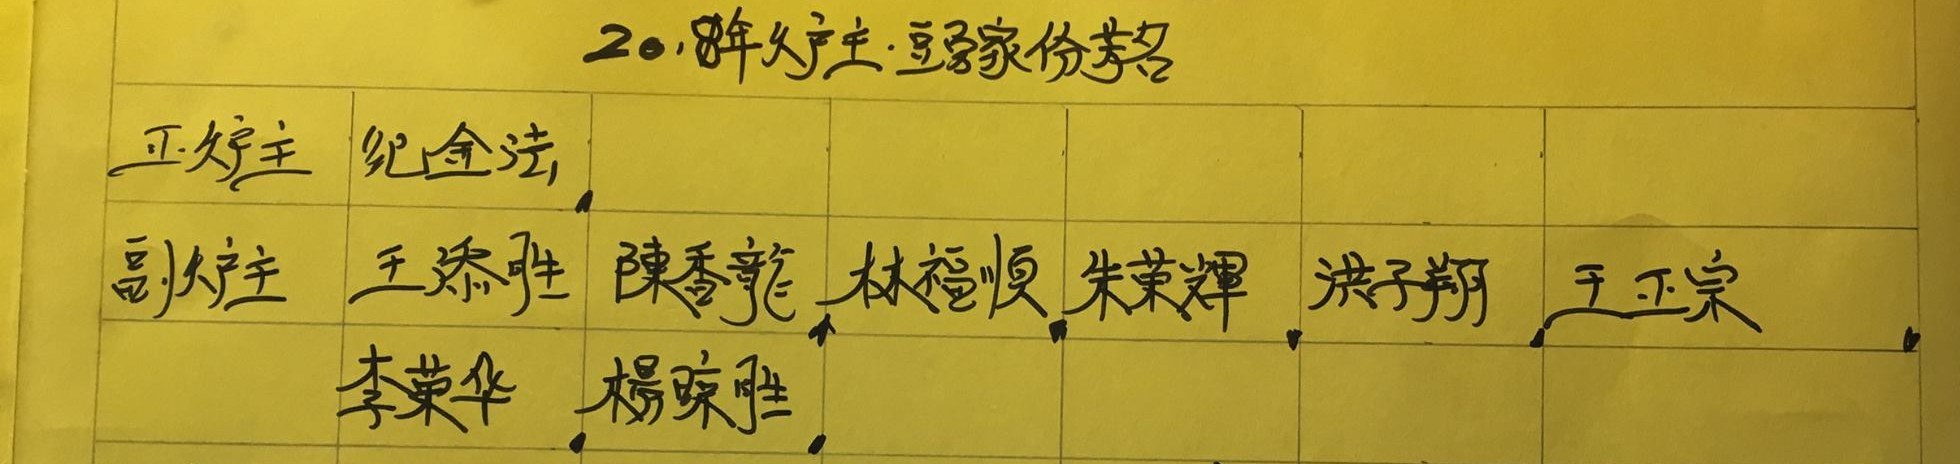 2018年炉主.豆頭家份芳名
正炉主 纪金法
副炉主 王添胜 陳香龍 林福順 朱荣輝 洪子翔 王正宗
李荣华 楊琼胜